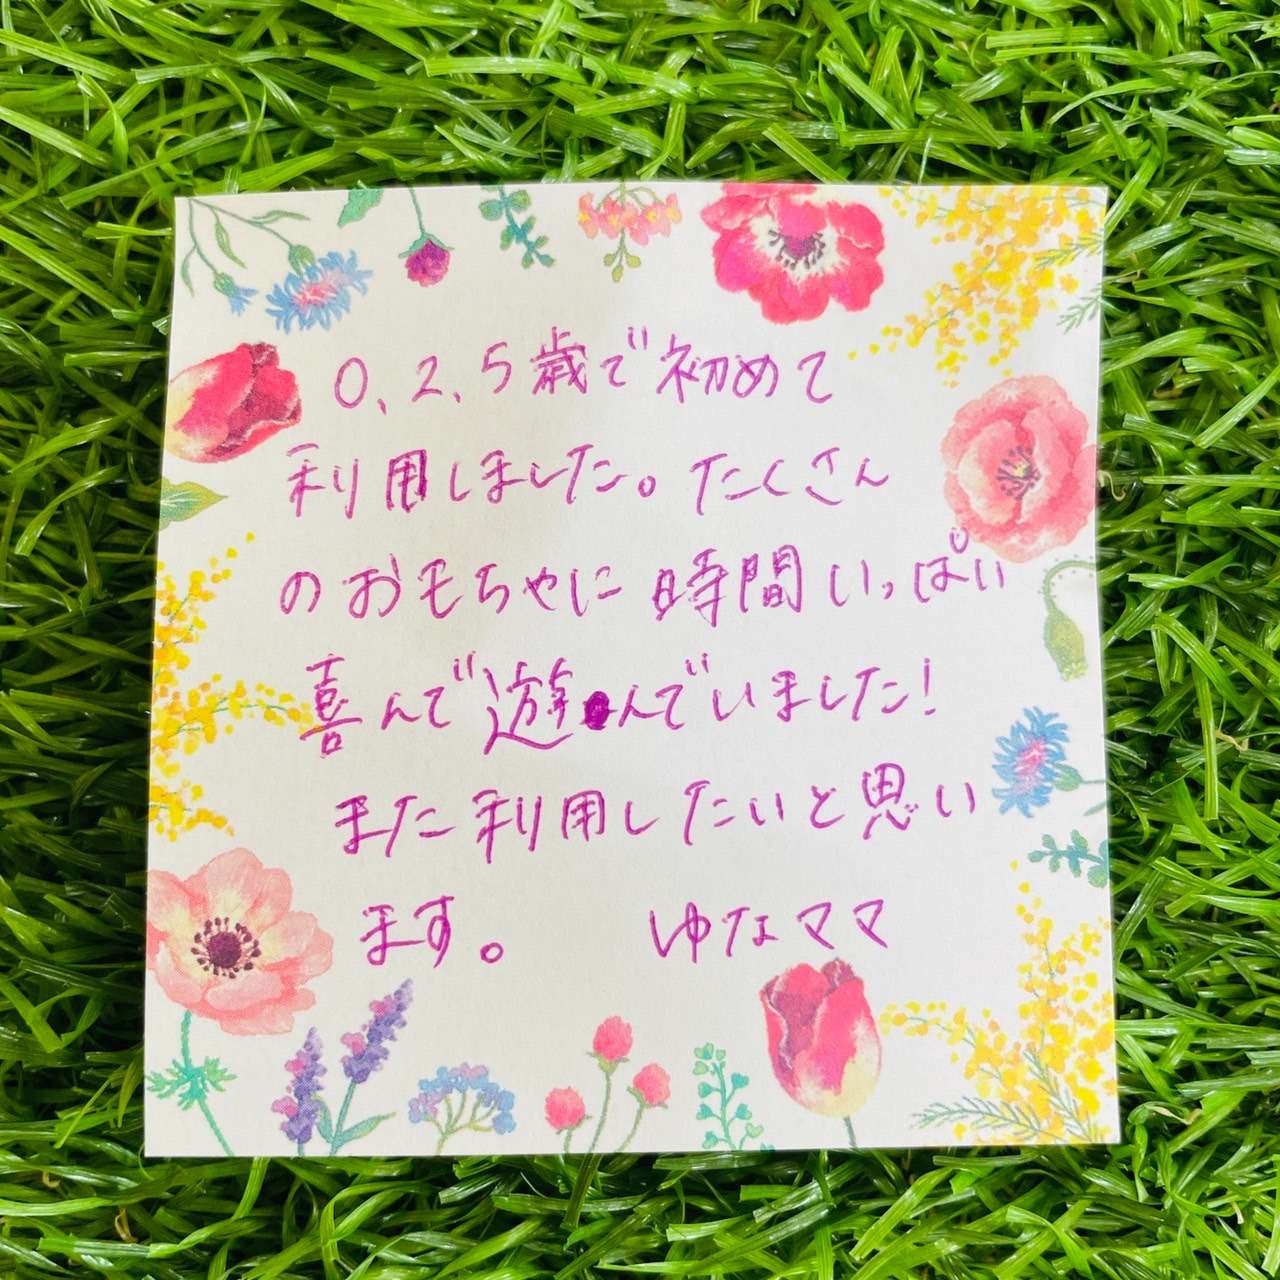 0、2、5歳で初めて
利用しました。たくさん
のおもちゃに時間いっぱい
喜んで遊んでいました!
また利用したいと思い
ます。 ゆなママ